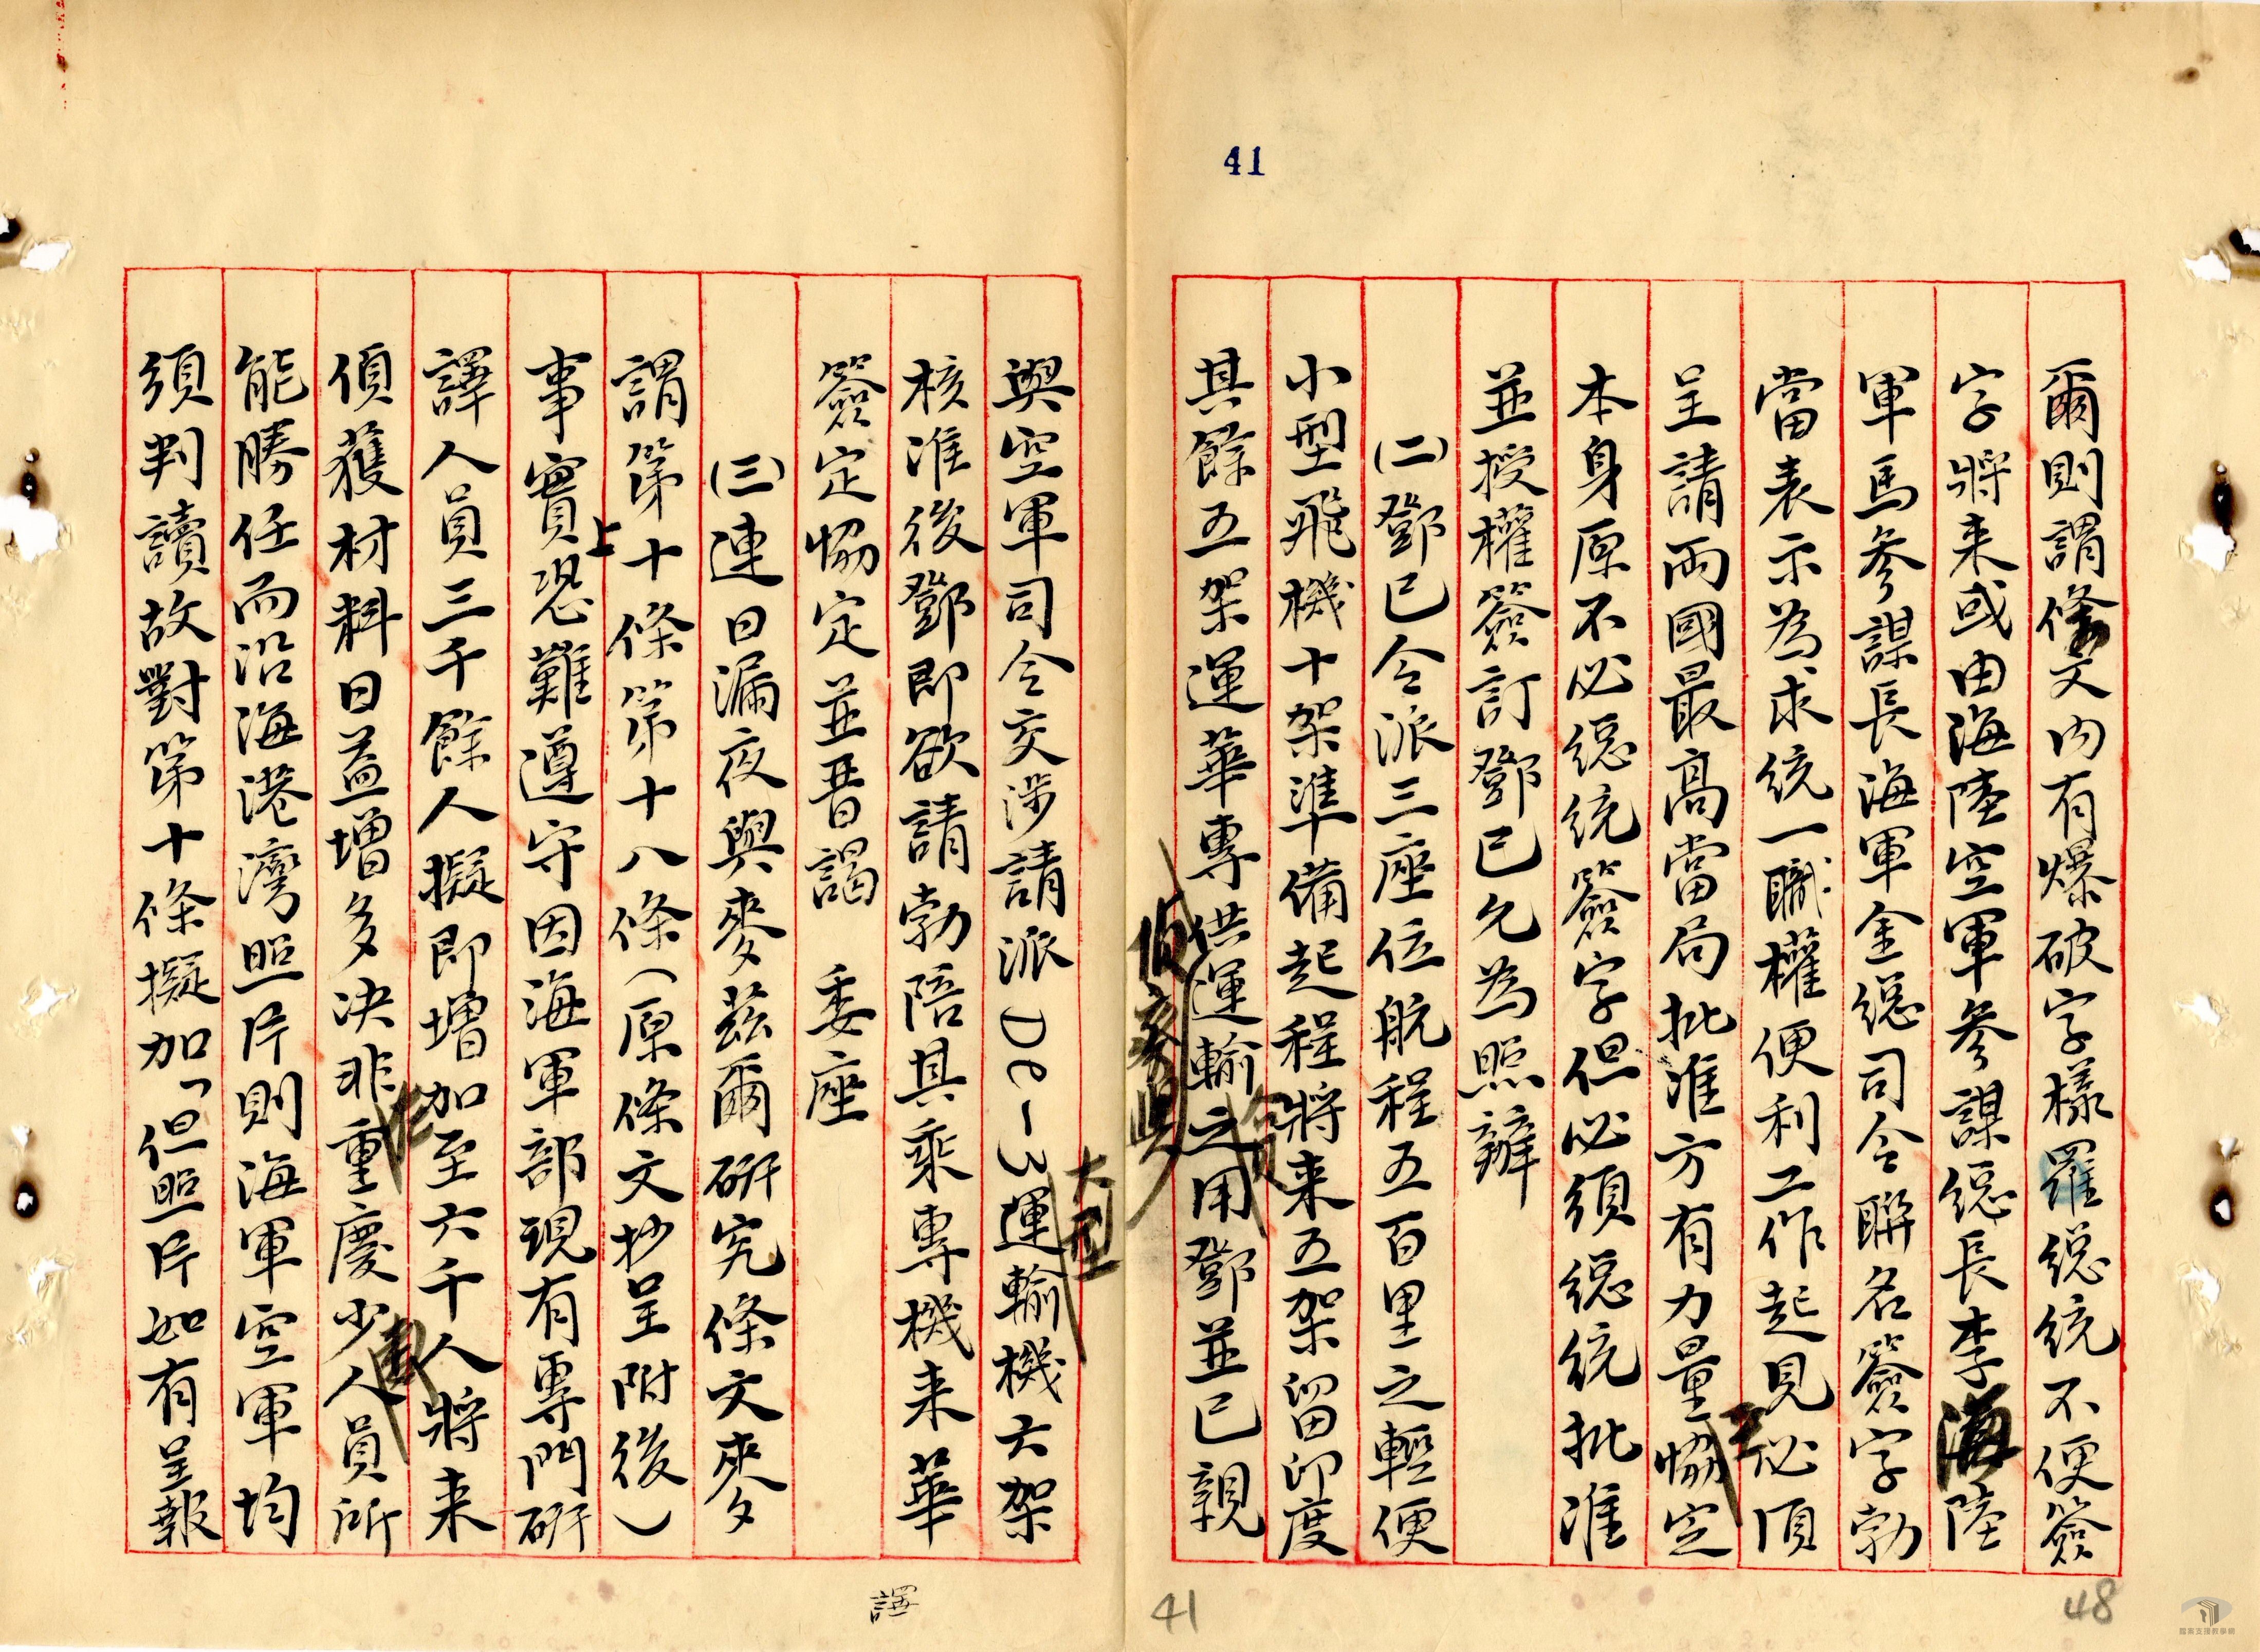 41
爾則謂條文內有爆破字樣羅總統不便簽
字將来或由海陸空軍參謀總長李海陸
軍馬參謀長海軍金總司令聯名簽字勃
當表示為求統一職權便利工作起見必須
呈請兩國最高當局批准方有力量協定
本身原不必總統簽字但必須總統批准
並授權簽訂鄧已允為照辦
(二)鄧已令派三座位航程五百里之輕便
小型飛機十架準備起程將来五架留印度
其餘五架運華專供運輸之用鄧並已親
與空軍司令交涉請派DC-3運輸機六架
大型
核准後鄧即欲請勃陪其乘專機来華
簽定協定並晋謁 委座
(三)連日漏夜與麥茲爾研究條文麥
謂第十條第十八條(原條文抄呈附後)
事實上恐難遵守因海軍部現有專門研
譯人員三千餘人擬即增加至六千人將来
偵獲材料日益增多決非重慶少人員所
能勝任而沿海港灣照片則海軍空軍均
須判讀故對第十條擬加「但照片如有呈報
譯
41
48